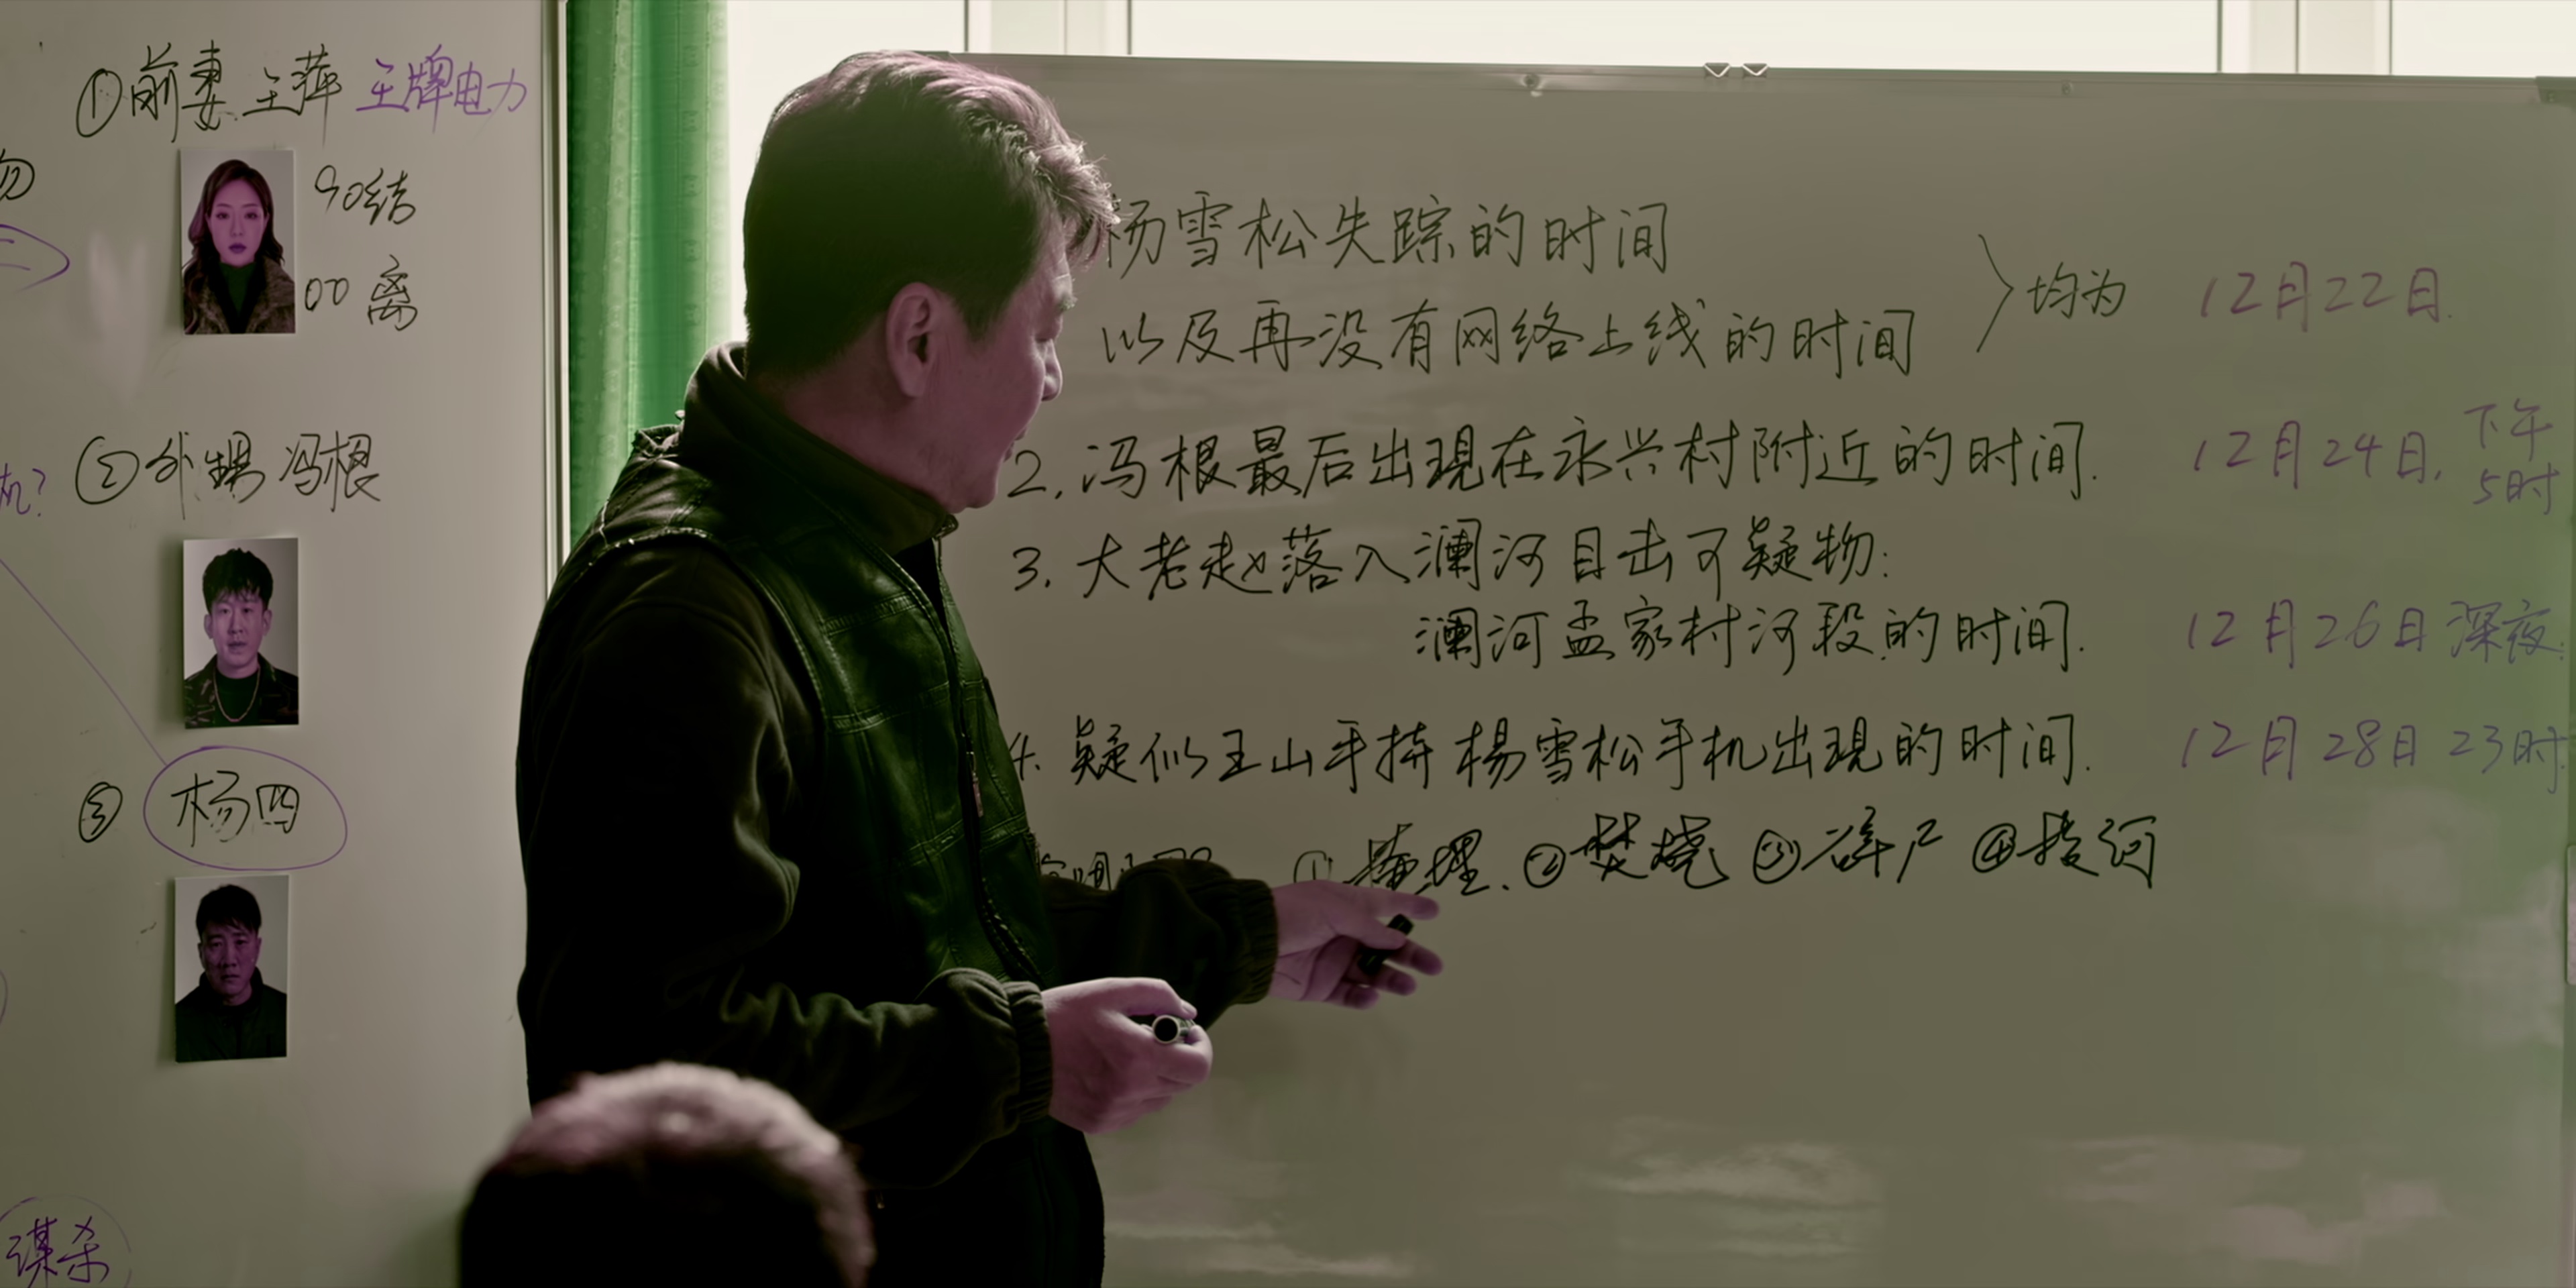 ①前妻 王萍 王牌电力
90结
00 离
②外甥 冯根
机?
③ 杨四
谋杀
杨雪松失踪的时间
以及再没有网络上线的时间
均为 12月22日.
2. 冯根最后出现在永兴村附近的时间. 12月24日, 下午5时
3. 大老赵落入澜河目击可疑物:
澜河孟家村河段的时间. 12月26日深夜.
4. 疑似王山手持杨雪松手机出现的时间. 12月28日 23时
①掩埋. ②焚烧 ③ ④投河